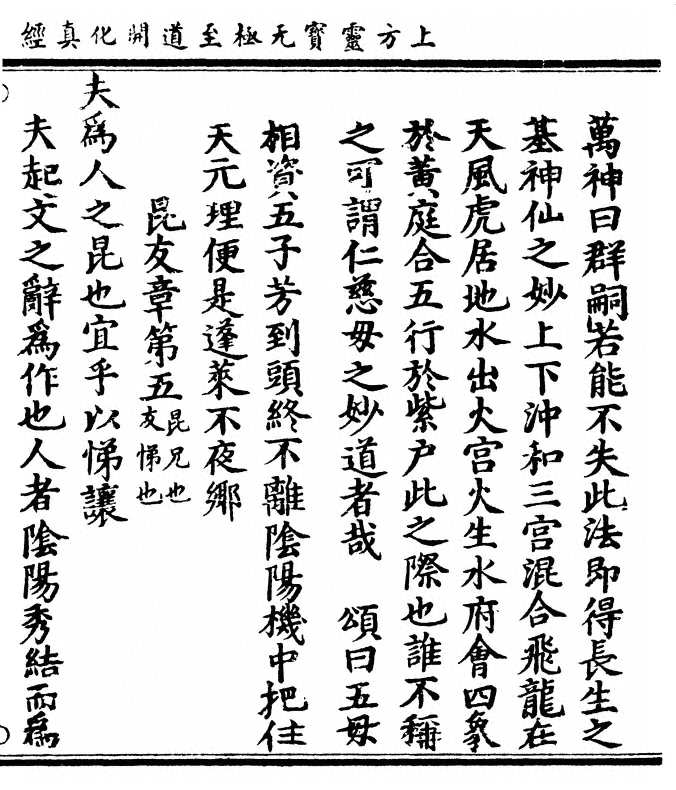 上方靈寶无極至道開化真經
萬神曰群嗣若能不失此法即得長生之
基神仙之妙上下沖和三宮混合飛龍在
天風虎居地水出火宮火生水府會四象
於黃庭合五行於紫户此之際也誰不稱
之可謂仁慈母之妙道者哉　頌曰五母
相資八五子芳到頭終不離陰陽機中把住
天元理便是蓬萊不夜鄉
昆友章第五昆兄也友悌也
夫為人之昆也宜乎以悌讓
夫起文之辭為作也人者陰陽秀結而為